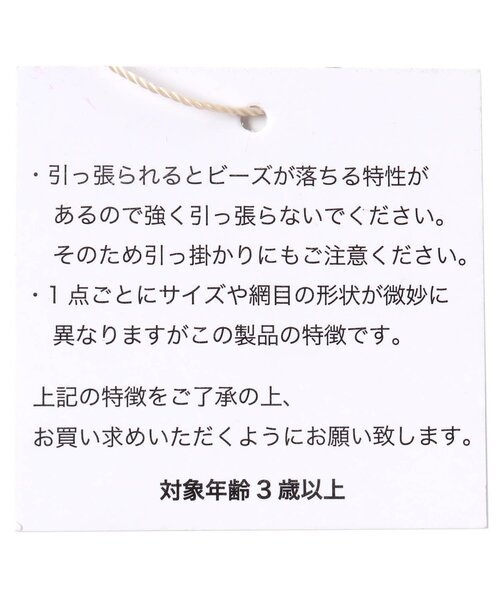 ・引っ張られるとビーズが落ちる特性が
あるので強く引っ張らないでください。
そのため引っ掛かりにもご注意ください。
・1点ごとにサイズや網目の形状が微妙に
異なりますがこの製品の特徴です。
上記の特徴をご了承の上、
お買い求めいただくようにお願い致します。
対象年齢3歳以上